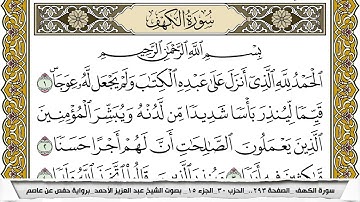 سورة الكهف
بِسْمِ اللَّهِ الرَّحْمَٰنِ الرَّحِيمِ
الْحَمْدُ لِلَّهِ الَّذِي أَنزَلَ عَلَىٰ عَبْدِهِ الْكِتَابَ وَلَمْ يَجْعَل لَّهُ عِوَجًا ۜ ١
قَيِّمًا لِّيُنذِرَ بَأْسًا شَدِيدًا مِّن لَّدُنْهُ وَيُبَشِّرَ الْمُؤْمِنِينَ
الَّذِينَ يَعْمَلُونَ الصَّالِحَاتِ أَنَّ لَهُمْ أَجْرًا حَسَنًا ٢
سورة الكهف _الصفحة ٢٩٣.. الحزب ٣٠_الجزء ١٥_ بصوت الشيخ عبد العزيز الأحمد_برواية حفص عن عاصم